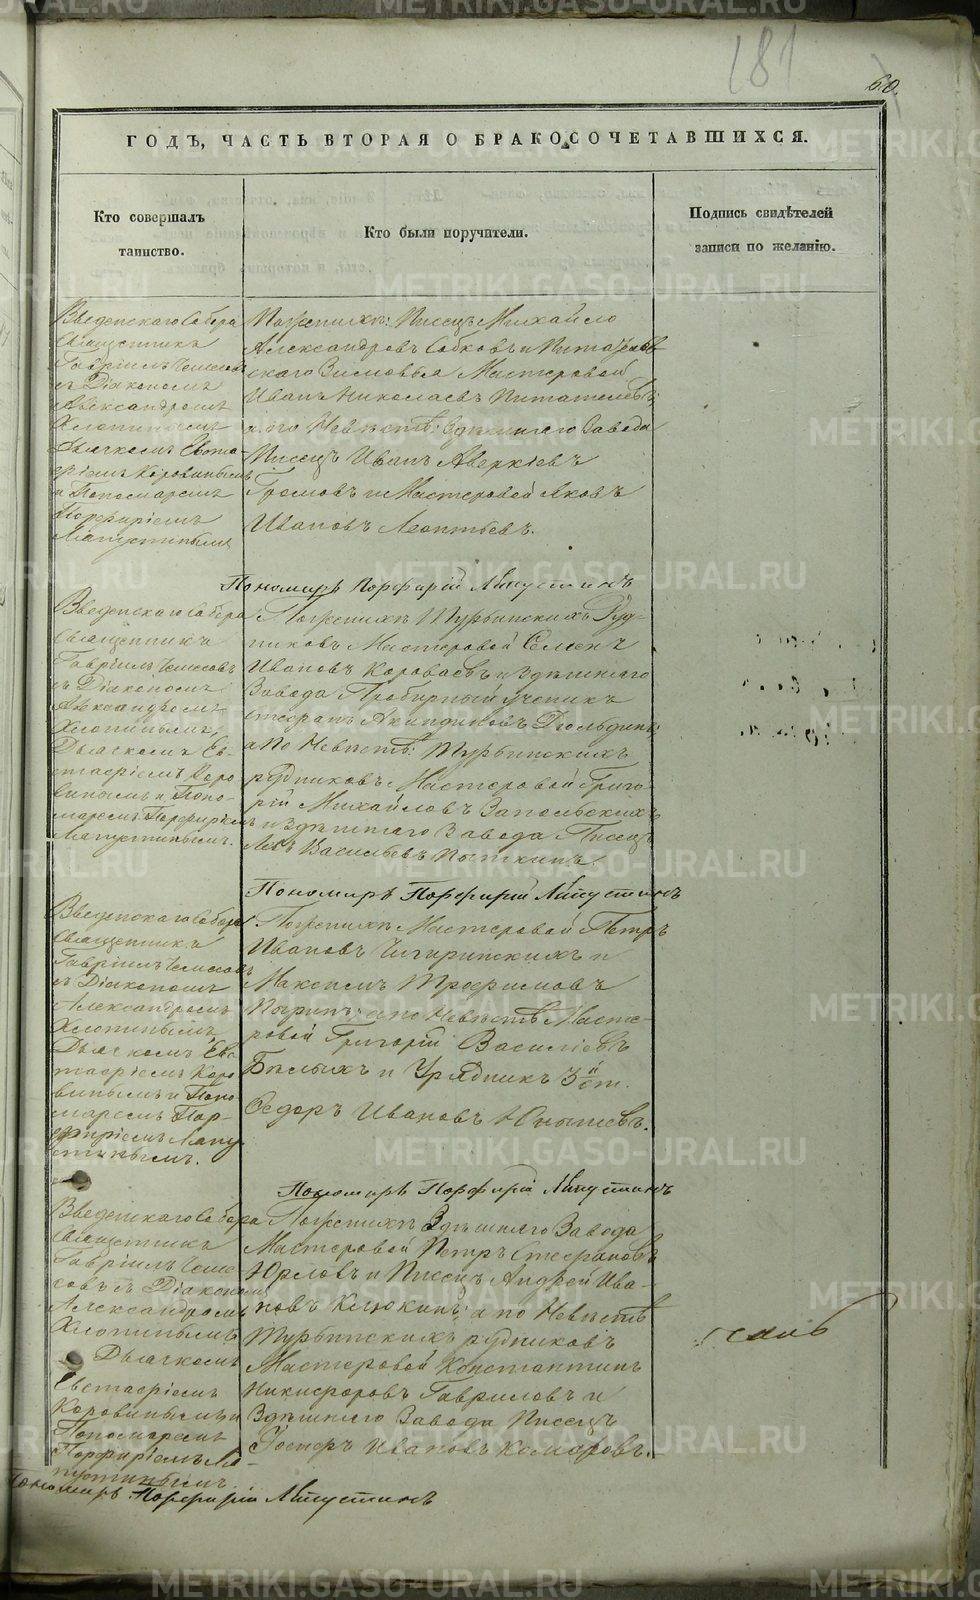 181
60.
ГОДЪ, ЧАСТЬ ВТОРАЯ О БРАКОСОЧЕТАВШИХСЯ.
Кто совершалъ
таинство.
Кто были поручители.
Подпись свидѣтелей
записи по желанію.
Введенскаго Собора
Священникъ
Гавріилъ
съ Діакономъ
Александромъ
Хлопинымъ
Дьячкомъ Евста-
фіемъ Коровинымъ
и Пономаремъ
Порфиріемъ
Лапустинымъ
По женихѣ: Писецъ Михайло
Александровъ Собковъ и
скаго Зимовья Мастеровой
Иванъ Николаевъ
а по Невѣстѣ: Здѣшняго Завода
Писецъ Иванъ Аверкіевъ
Громовъ и Мастеровой Яковъ
Ивановъ Леонтьевъ.
Пономарь Порфирій Лапустинъ
Введенскаго Собора
Священникъ
Гавріилъ
съ Діакономъ
Александромъ
Хлопинымъ,
Дьячкомъ Ев-
стафіемъ Коро
винымъ и Поно-
маремъ Порфиріемъ
Лапустинымъ.
По женихѣ Турьинскихъ Руд-
никовъ Мастеровой Семенъ
Ивановъ Короваевъ и Здѣшняго
Завода Пробирный ученикъ
Стефанъ Акиндиновъ
а по Невѣстѣ: Турьинскихъ
рудниковъ Мастеровой Григо-
рій Михайловъ Запольскихъ
и Здѣшняго Завода Писецъ
Левъ Васильевъ
Пономарь Порфирій Лапустинъ
Введенскаго Собора
Священникъ
Гавріилъ
съ Діакономъ
Александромъ
Хлопинымъ,
Дьячкомъ Евс-
тафіемъ Коро
винымъ и Поно
маремъ Пор-
фиріемъ Лапу
стинымъ.
По женихѣ Мастеровой Петръ
Ивановъ Чигиринскихъ и
Максимъ Трофимовъ
а по Невѣстѣ Масте-
ровой Григорій Василіевъ
Бѣлыхъ и Урядникъ 3й ст.
Федоръ Ивановъ
Пономарь Порфирій Лапустинъ
Введенскаго Собора
Священникъ
Гавріилъ
съ Діакономъ
Александромъ
Хлопинымъ
Дьячкомъ
Евстафіемъ
Коровинымъ и
Пономаремъ
Порфиріемъ Ла-
пустинымъ.
По женихѣ Здѣшняго Завода
Мастеровой Петръ Стефановъ
Юрловъ и Писецъ Андрей Ива-
новъ Клюкинъ, а по Невѣстѣ
Турьинскихъ рудниковъ
Мастеровой Константинъ
Никифоровъ Гавриловъ и
Здѣшняго Завода Писецъ
Ивановъ Комаровъ.
Пономарь Порфирій Лапустинъ
METRIKI.GASO-URAL.RU